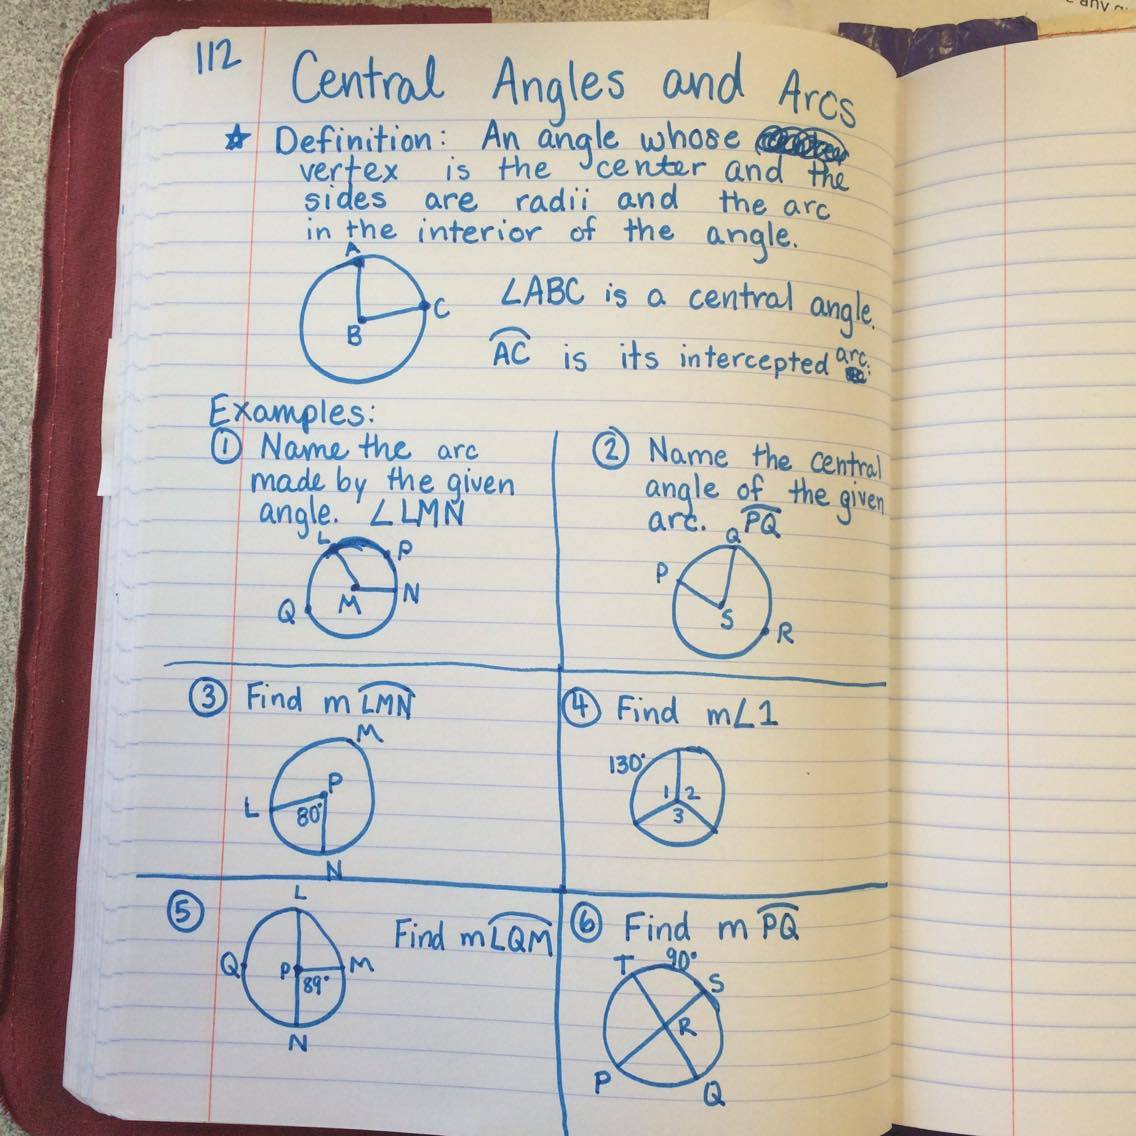 112
Central Angles and Arcs
☆ Definition: An angle whose
vertex is the center and the
sides are radii and the arc
in the interior of the angle.
A
C
B
∠ABC is a central angle.
AC is its intercepted arc.
Examples:
① Name the arc
made by the given
angle. ∠LMN
L
P
N
M
Q
② Name the central
angle of the given
arc. PQ
Q
P
S
R
③ Find m LMN
M
P
L
80°
N
④ Find m∠1
130°
1 2
3
⑤
L
Q
P
M
89°
N
Find mLQM
⑥ Find m PQ
T
90°
S
R
P
Q